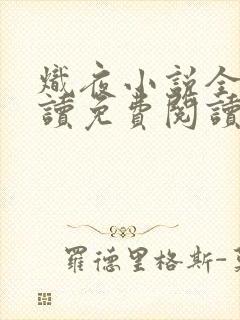 熾夜小說全
讀免費閱讀
羅德里格斯-莫